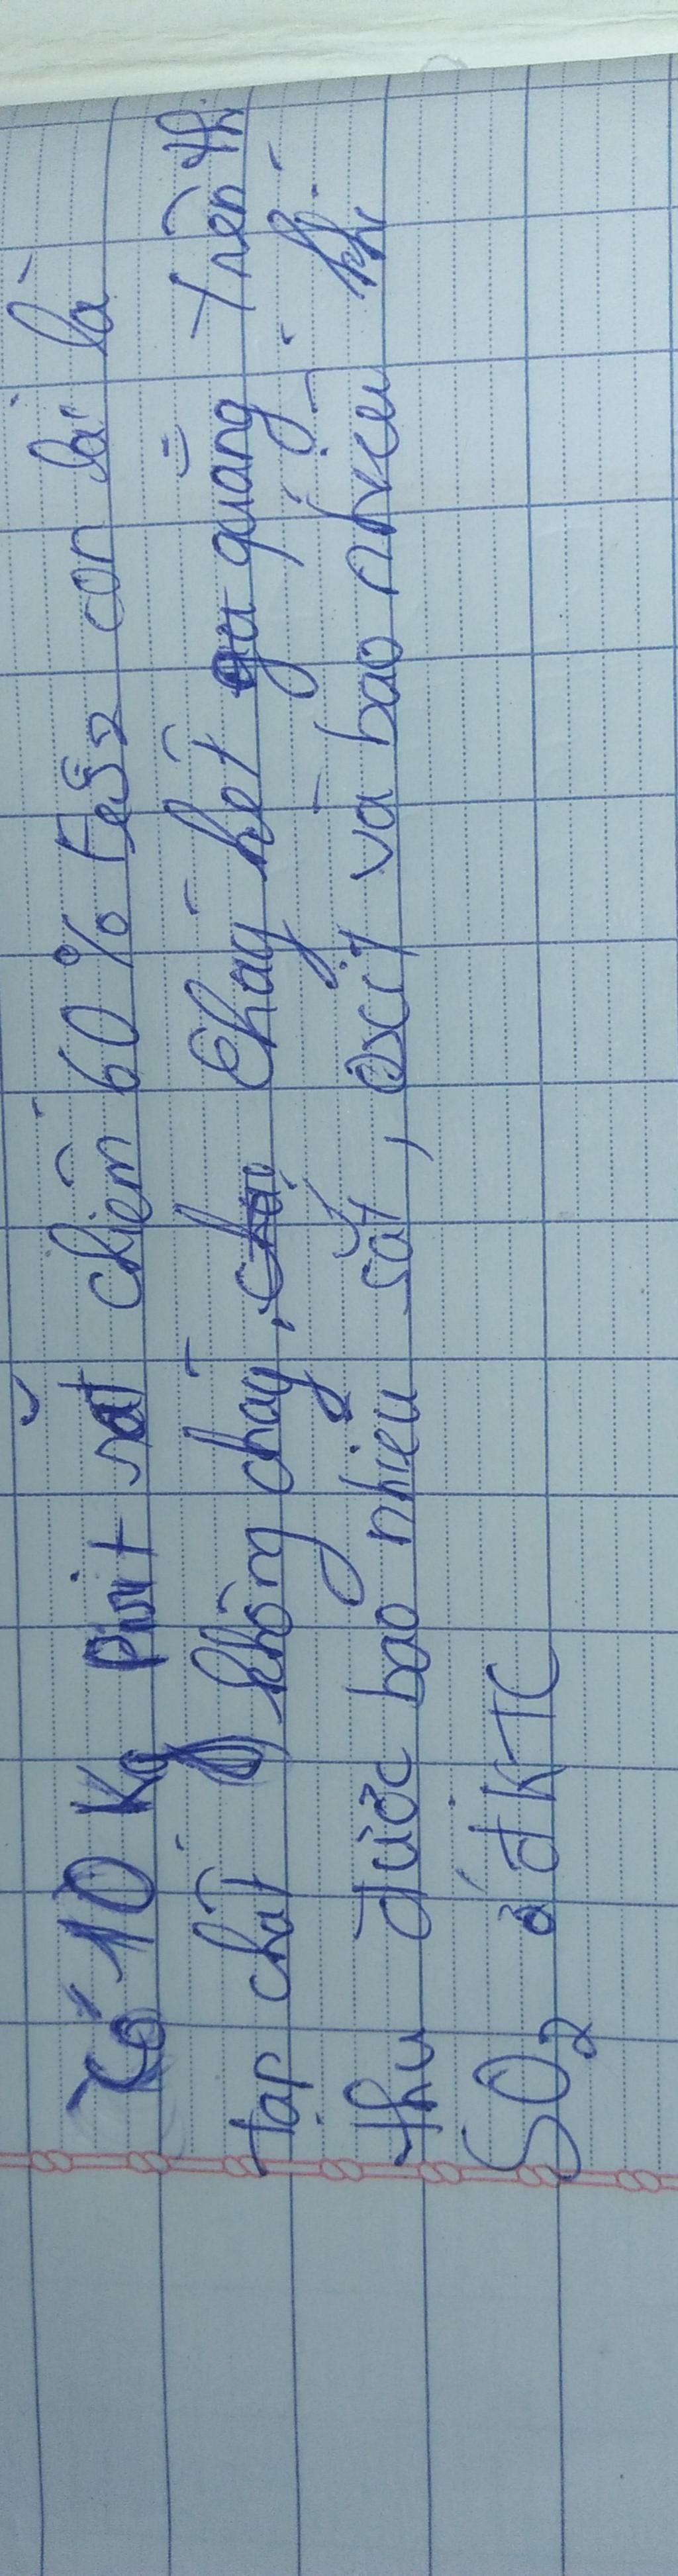 Có 10 Kg Pirit sắt chiếm 60% FeS2 còn lại là
tạp chất không cháy, Cháy hết quặng trên thì
thu được bao nhiêu sắt, oxit và bao nhiêu khí
SO2 ở đkTC